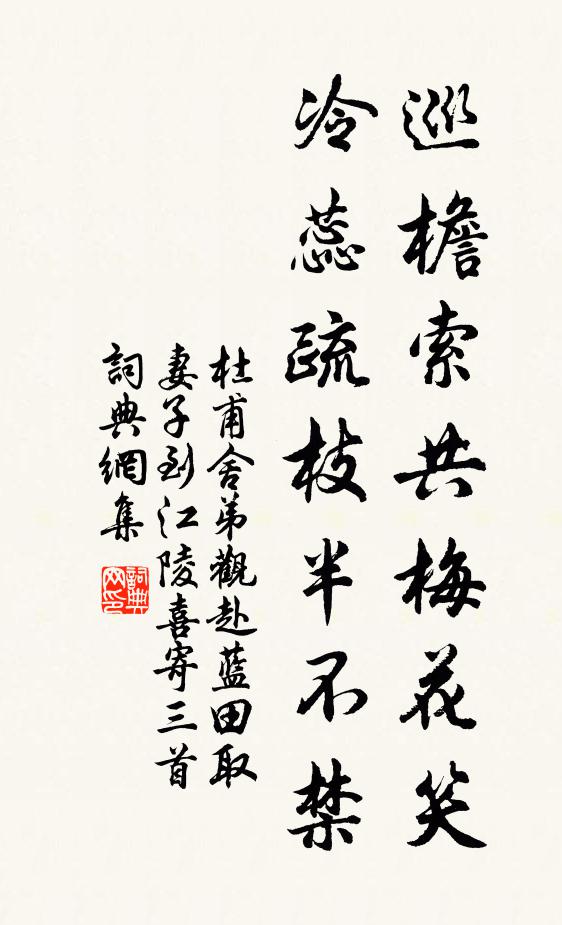 巡檐索共梅花笑
冷蕊疏枝半不禁
杜甫舍弟觀赴藍田取
妻子到江陵喜寄三首
詞典網集
詞典网印